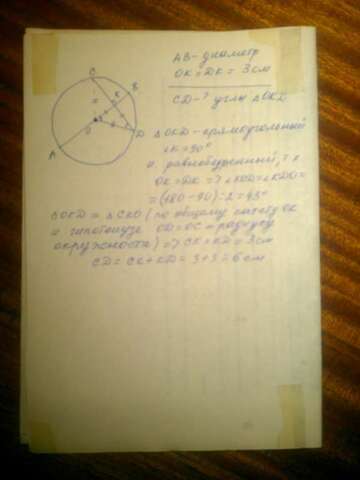 AB - диаметр
OK = DK = 3 см
CD - ? углы △OKD
C
K
B
O
D
A
△OKD - прямоугольный
∠K = 90°
и равнобедренный, т.к
OK = DK => ∠KOD = ∠KDO =
= (180 - 90) : 2 = 45°
△OKD = △CKO (по общему катету OK
и гипотенузе OD = OC = радиусу
окружности) => CK = KD = 3 см
CD = CK + KD = 3 + 3 = 6 см